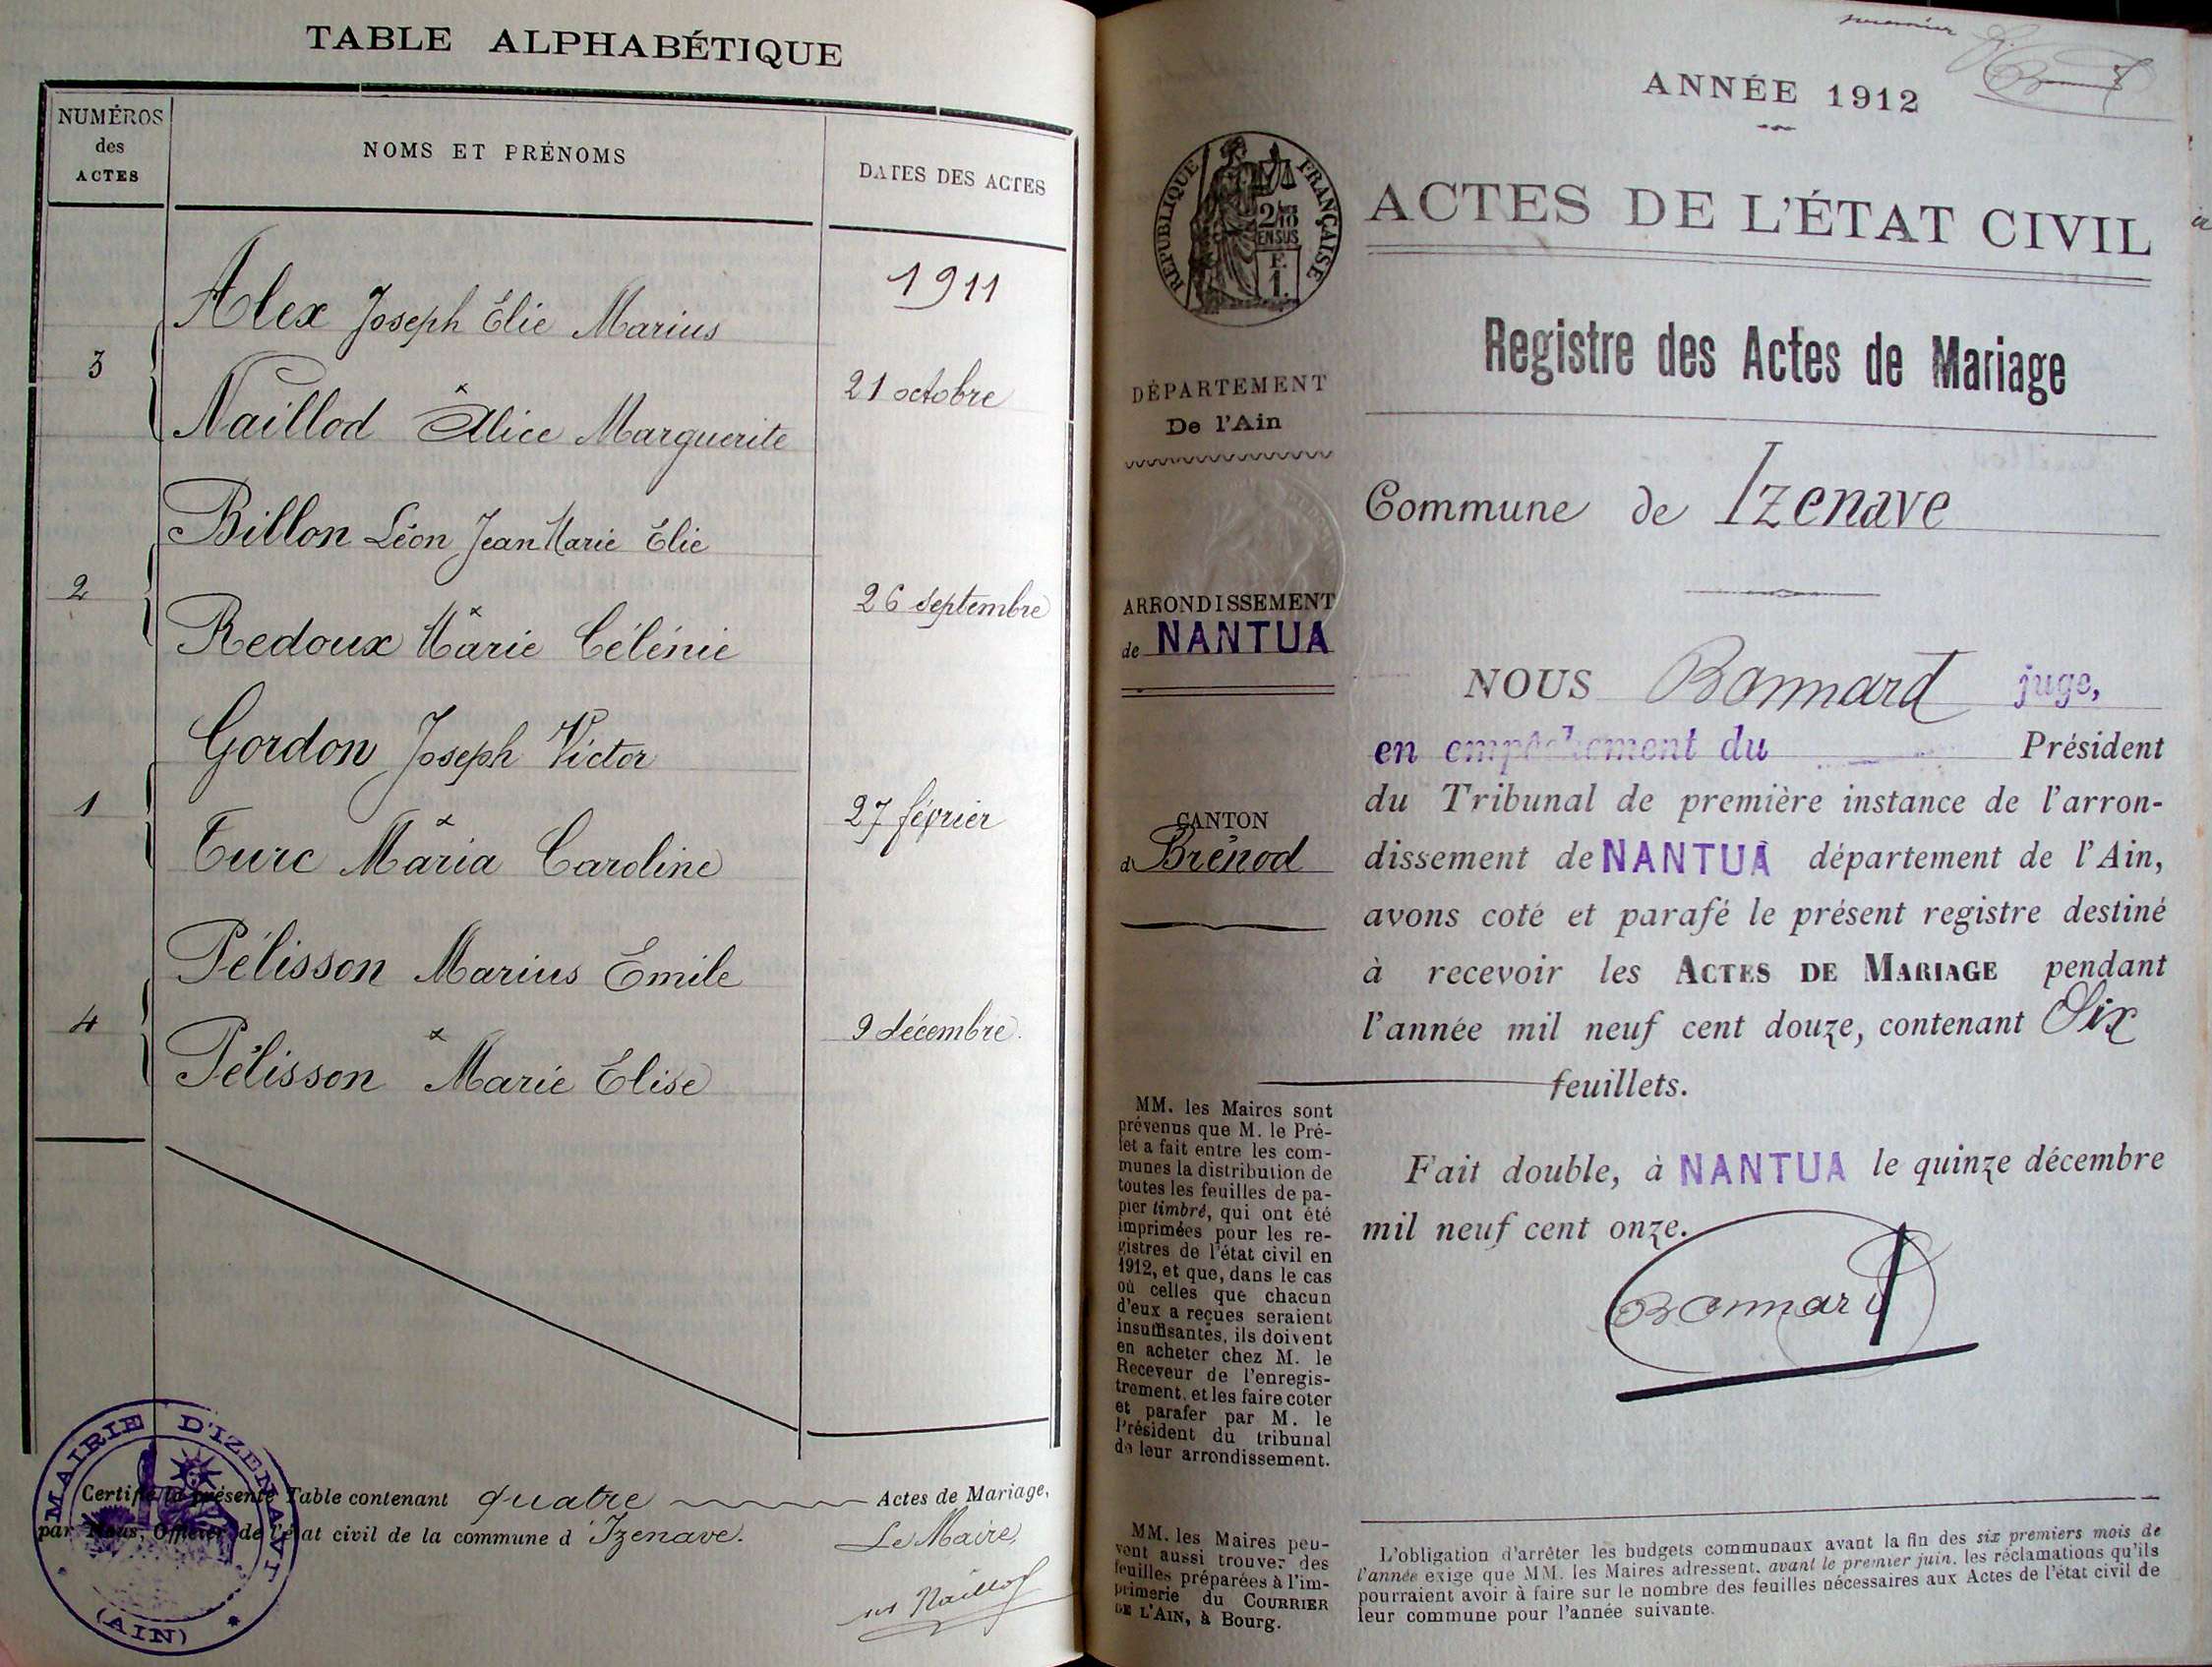 TABLE ALPHABÉTIQUE
NUMÉROS
des
ACTES
NOMS ET PRÉNOMS
DATES DES ACTES
1911
Alex Joseph Elie Marius
3
21 octobre
Naillod Alice Marguerite
Billon Léon Jean Marie Elie
2
26 septembre
Redoux Marie Célénie
Gordon Joseph Victor
1
27 février
Turc Maria Caroline
Pélisson Marius Emile
4
9 décembre.
Pélisson Marie Elise
MAIRIE D'IZENAVE
(AIN)
Certifié la présente Table contenant quatre Actes de Mariage,
par Nous, Officier de l'état civil de la commune d'Izenave.
Le Maire,
Naillod
premier
Bonnard
ANNÉE 1912
RÉPUBLIQUE FRANÇAISE
EN SUS
F.
1.
ACTES DE L'ÉTAT CIVIL
Registre des Actes de Mariage
DÉPARTEMENT
De l'Ain
Commune de Izenave
ARRONDISSEMENT
de NANTUA
CANTON
d Brénod
NOUS Bonnard juge,
en empêchement du Président
du Tribunal de première instance de l'arron-
dissement de NANTUA département de l'Ain,
avons coté et parafé le présent registre destiné
à recevoir les ACTES DE MARIAGE pendant
l'année mil neuf cent douze, contenant Six
feuillets.
Fait double, à NANTUA le quinze décembre
mil neuf cent onze.
Bonnard
MM. les Maires sont
prévenus que M. le Pré-
fet a fait entre les com-
munes la distribution de
toutes les feuilles de pa-
pier timbré, qui ont été
imprimées pour les re-
gistres de l'état civil en
1912, et que, dans le cas
où celles que chacun
d'eux a reçues seraient
insuffisantes, ils doivent
en acheter chez M. le
Receveur de l'enregis-
trement, et les faire coter
et parafer par M. le
Président du tribunal
de leur arrondissement.
MM. les Maires peu-
vent aussi trouver des
feuilles préparées à l'im-
primerie du COURRIER
DE L'AIN, à Bourg.
L'obligation d'arrêter les budgets communaux avant la fin des six premiers mois de
l'année exige que MM. les Maires adressent, avant le premier juin, les réclamations qu'ils
pourraient avoir à faire sur le nombre des feuilles nécessaires aux Actes de l'état civil de
leur commune pour l'année suivante.